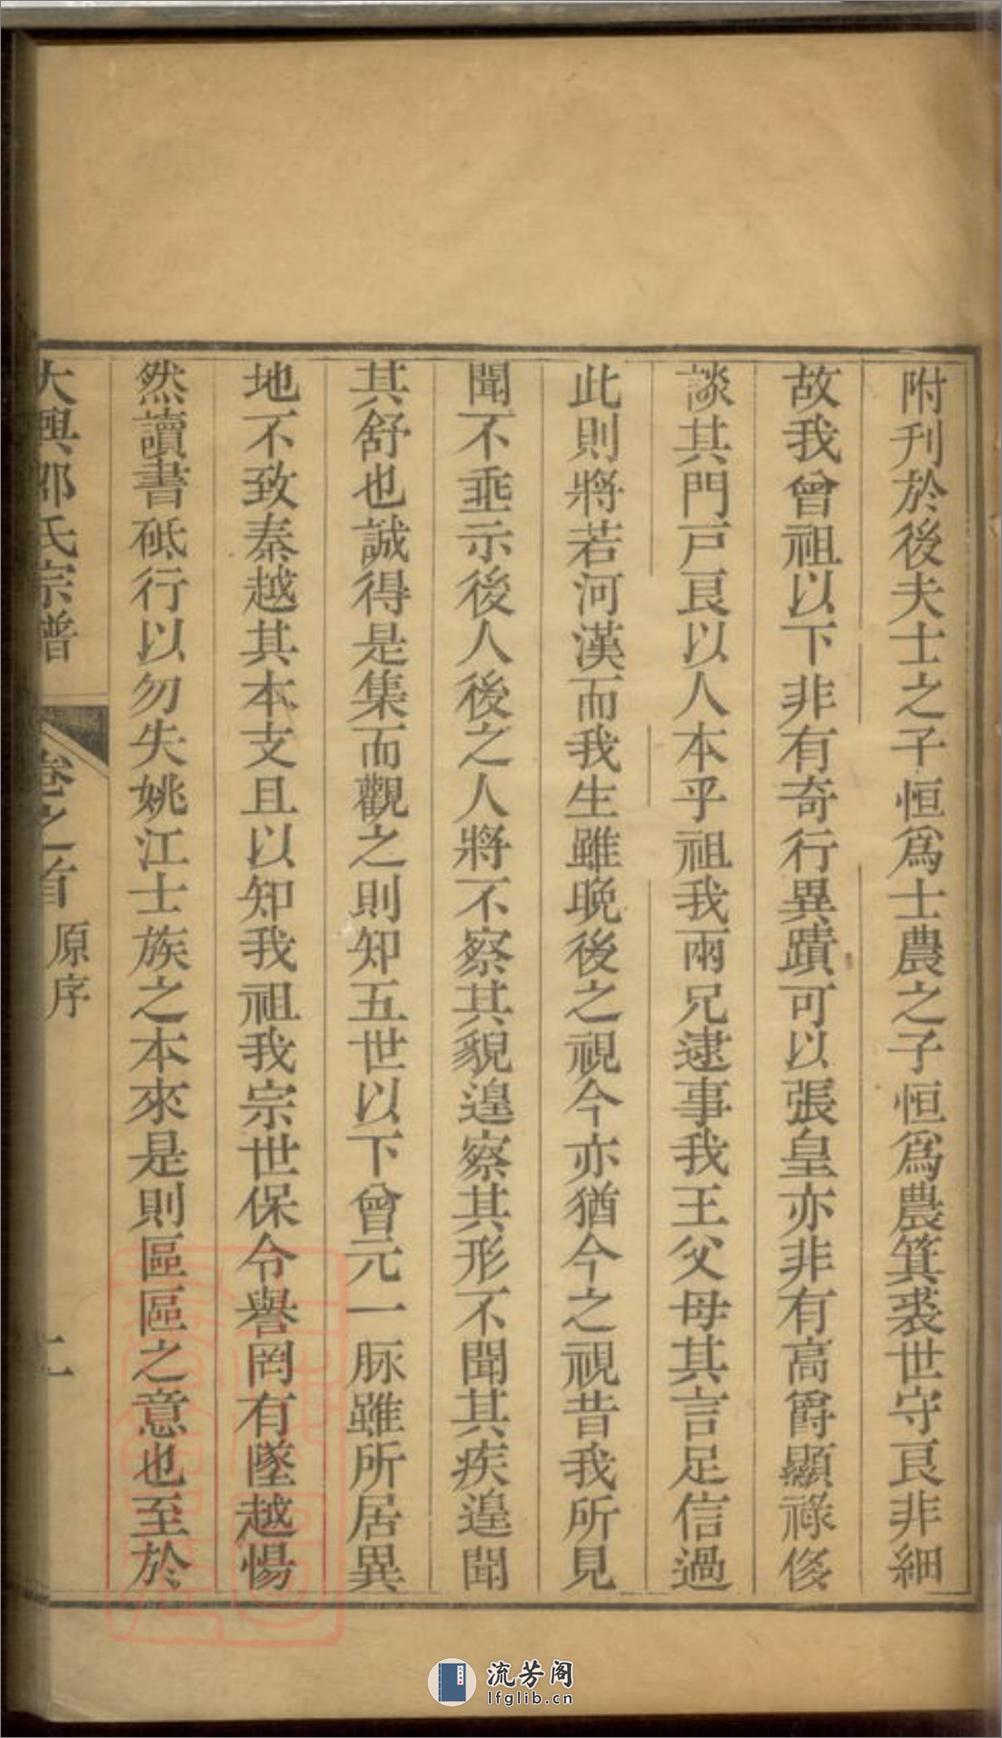 附刊於後夫士之子恒爲士農之子恒爲農箕裘世守良非細
故我曾祖以下非有奇行異蹟可以張皇亦非有高爵顯祿侈
談其門戸良以人本乎祖我兩兄逮事我王父母其言足信過
此則將若河漢而我生雖晩後之視今亦猶今之視昔我所見
聞不乖示後人後之人將不察其貌遑察其形不聞其疾遑聞
其舒也誠得是集而觀之則知五世以下曾元一脉雖所居異
地不致秦越其本支且以知我祖我宗世保令譽罔有墜越惕
然讀書砥行以勿失姚江士族之本來是則區區之意也至於
大興邵氏宗譜 卷之首 原序
流芳阁
lfglib.cn